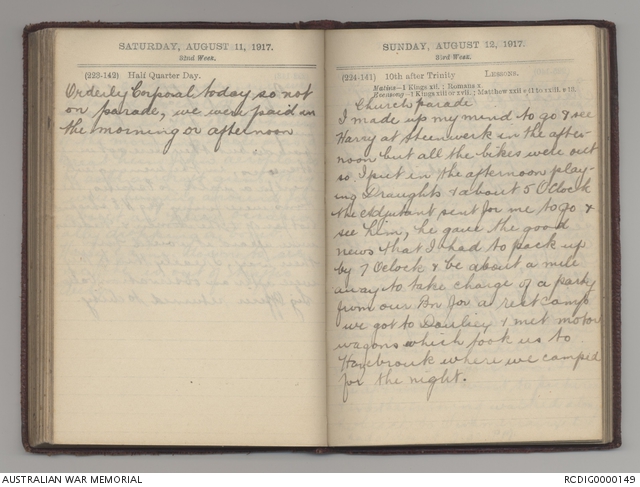 SATURDAY, AUGUST 11, 1917.
32nd Week.
(223-142) Half Quarter Day.
Orderly Corporal today so not
on parade, we were paid in
the morning or afternoon
SUNDAY, AUGUST 12, 1917.
33rd Week.
(224-141) 10th after Trinity Lessons.
Matins—1 Kings xii.; Romans x.
Evensong—1 Kings xiii or xvii.; Matthew xxii v 41 to xxiii. v 13.
Church parade
I made up my mind to go & see
Harry at Steenwerk in the after-
noon but all the bikes were out
so I put in the afternoon play-
ing Draughts & about 5 OClock
the Adjutant sent for me to go &
see him, he gave the good
news that I had to pack up
by 7 Oclock & be about a mile
away to take charge of a party
from our Bn for a rest camp
we got to & met motor
wagons which took us to
Hazebrouk where we camped
for the night.
AUSTRALIAN WAR MEMORIAL
RCDIG0000149